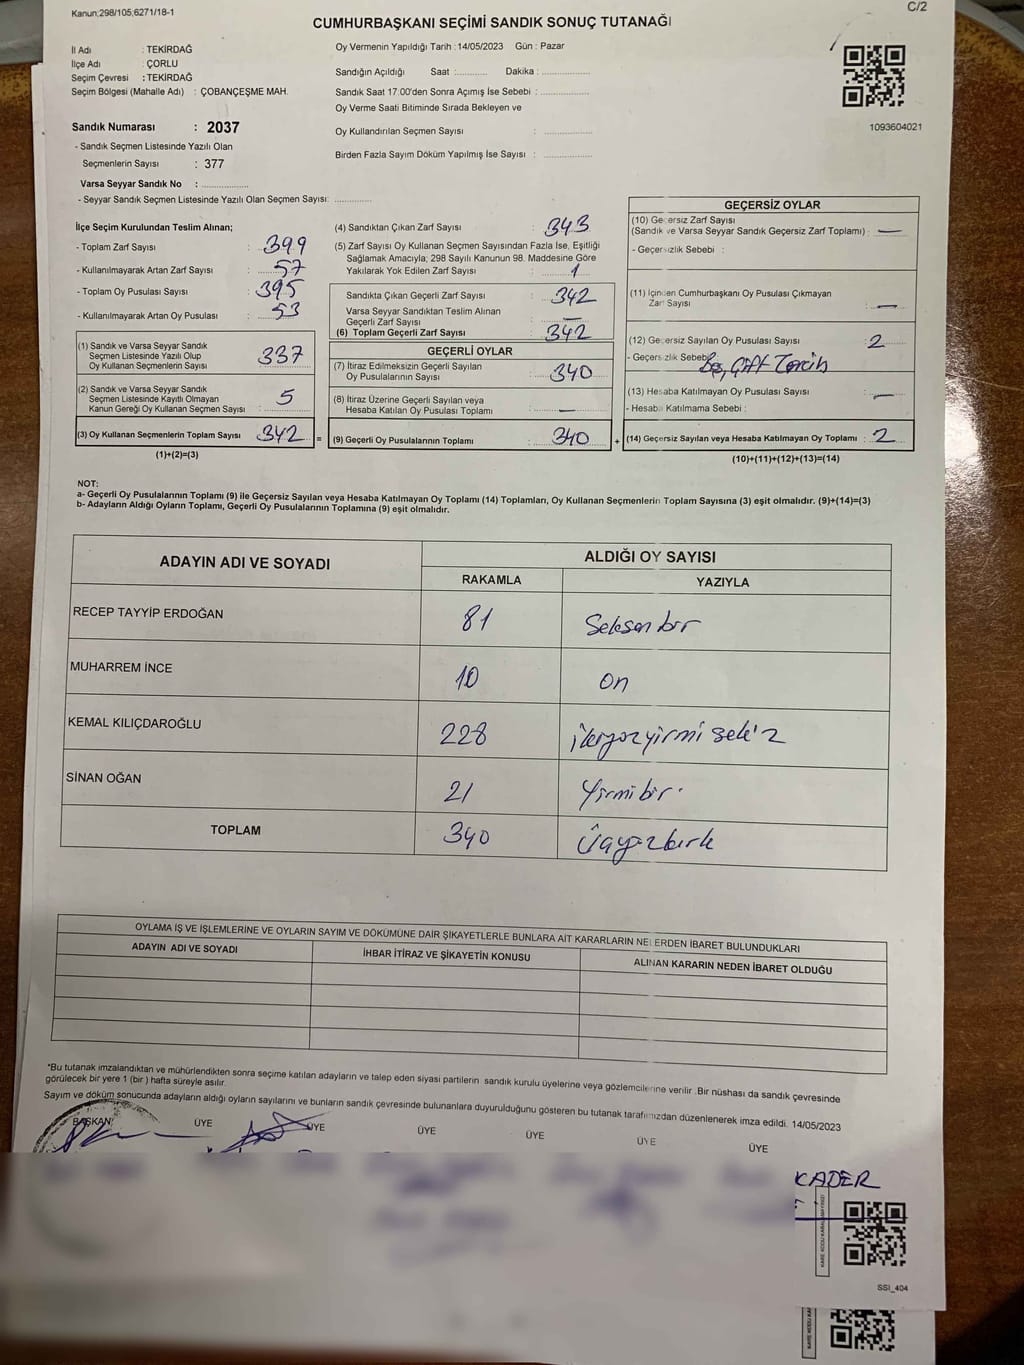 Kanun;298/105,6271/18-1
C/2
CUMHURBAŞKANI SEÇİMİ SANDIK SONUÇ TUTANAĞI
İl Adı : TEKİRDAĞ
İlçe Adı : ÇORLU
Seçim Çevresi : TEKİRDAĞ
Seçim Bölgesi (Mahalle Adı) : ÇOBANÇEŞME MAH.
Oy Vermenin Yapıldığı Tarih :14/05/2023 Gün : Pazar
Sandığın Açıldığı Saat :........... Dakika :................
Sandık Saat 17:00'den Sonra Açımış İse Sebebi :................
Oy Verme Saati Bitiminde Sırada Bekleyen ve
Oy Kullandırılan Seçmen Sayısı : ................
Birden Fazla Sayım Döküm Yapılmış İse Sayısı : ................
1093604021
Sandık Numarası : 2037
- Sandık Seçmen Listesinde Yazılı Olan
Seçmenlerin Sayısı : 377
Varsa Seyyar Sandık No : ................
- Seyyar Sandık Seçmen Listesinde Yazılı Olan Seçmen Sayısı: .............
İlçe Seçim Kurulundan Teslim Alınan;
- Toplam Zarf Sayısı : 399
- Kullanılmayarak Artan Zarf Sayısı : 57
- Toplam Oy Pusulası Sayısı : 395
- Kullanılmayarak Artan Oy Pusulası : 53
(1) Sandık ve Varsa Seyyar Sandık
Seçmen Listesinde Yazılı Olup
Oy Kullanan Seçmenlerin Sayısı : 337
(2) Sandık ve Varsa Seyyar Sandık
Seçmen Listesinde Kayıtlı Olmayan
Kanun Gereği Oy Kullanan Seçmen Sayısı : 5
(3) Oy Kullanan Seçmenlerin Toplam Sayısı : 342 =
(1)+(2)=(3)
(4) Sandıktan Çıkan Zarf Sayısı : 343
(5) Zarf Sayısı Oy Kullanan Seçmen Sayısından Fazla İse, Eşitliği
Sağlamak Amacıyla; 298 Sayılı Kanunun 98. Maddesine Göre
Yakılarak Yok Edilen Zarf Sayısı : 1
Sandıkta Çıkan Geçerli Zarf Sayısı : 342
Varsa Seyyar Sandıktan Teslim Alınan
Geçerli Zarf Sayısı : —
(6) Toplam Geçerli Zarf Sayısı : 342
GEÇERLİ OYLAR
(7) İtiraz Edilmeksizin Geçerli Sayılan
Oy Pusulalarının Sayısı : 340
(8) İtiraz Üzerine Geçerli Sayılan veya
Hesaba Katılan Oy Pusulası Toplamı : —
(9) Geçerli Oy Pusulalarının Toplamı : 340 +
GEÇERSİZ OYLAR
(10) Geçersiz Zarf Sayısı
(Sandık ve Varsa Seyyar Sandık Geçersiz Zarf Toplamı) : —
- Geçersizlik Sebebi :
(11) İçinden Cumhurbaşkanı Oy Pusulası Çıkmayan
Zarf Sayısı : —
(12) Geçersiz Sayılan Oy Pusulası Sayısı : 2
- Geçersizlik Sebebi: Boş, Çift Tercih
(13) Hesaba Katılmayan Oy Pusulası Sayısı : —
- Hesaba Katılmama Sebebi :
(14) Geçersiz Sayılan veya Hesaba Katılmayan Oy Toplamı : 2
(10)+(11)+(12)+(13)=(14)
NOT:
a- Geçerli Oy Pusulalarının Toplamı (9) ile Geçersiz Sayılan veya Hesaba Katılmayan Oy Toplamı (14) Toplamları, Oy Kullanan Seçmenlerin Toplam Sayısına (3) eşit olmalıdır. (9)+(14)=(3)
b- Adayların Aldığı Oyların Toplamı, Geçerli Oy Pusulalarının Toplamına (9) eşit olmalıdır.
ADAYIN ADI VE SOYADI
ALDIĞI OY SAYISI
RAKAMLA YAZIYLA
RECEP TAYYİP ERDOĞAN 81 Seksen bir
MUHARREM İNCE 10 on
KEMAL KILIÇDAROĞLU 228 ikiyüzyirmi sekiz
SİNAN OĞAN 21 Yirmi bir
TOPLAM 340 Üçyüzkırk
OYLAMA İŞ VE İŞLEMLERİNE VE OYLARIN SAYIM VE DÖKÜMÜNE DAİR ŞİKAYETLERLE BUNLARA AİT KARARLARIN NELERDEN İBARET BULUNDUKLARI
ADAYIN ADI VE SOYADI İHBAR İTİRAZ VE ŞİKAYETİN KONUSU ALINAN KARARIN NEDEN İBARET OLDUĞU
*Bu tutanak imzalandıktan ve mühürlendikten sonra seçime katılan adayların ve talep eden siyasi partilerin sandık kurulu üyelerine veya gözlemcilerine verilir .Bir nüshası da sandık çevresinde
görülecek bir yere 1 (bir ) hafta süreyle asılır.
Sayım ve döküm sonucunda adayların aldığı oyların sayılarını ve bunların sandık çevresinde bulunanlara duyurulduğunu gösteren bu tutanak tarafımızdan düzenlenerek imza edildi. 14/05/2023
BAŞKAN ÜYE ÜYE ÜYE ÜYE ÜYE ÜYE
KADER
SSI_404